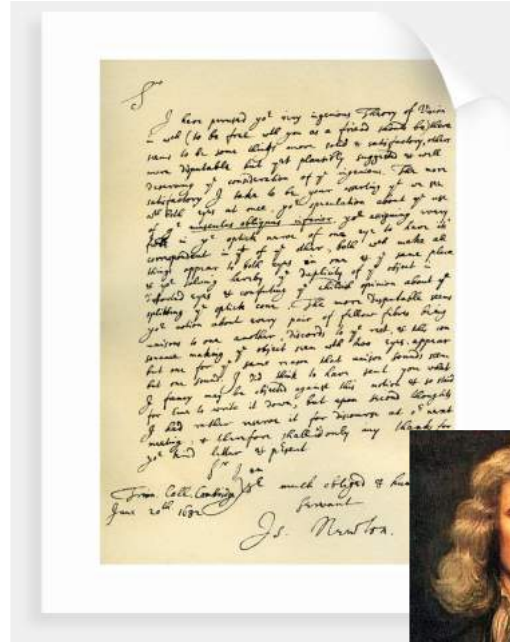 Sr
I have perused yor very ingenious Theory of Vision
in wch (to be free with you as a friend should be) there
seems to be some things more solid & satisfactory, others
more disputable but yet plausibly suggested & well
deserving ye consideration of ye ingenious. The more
satisfactory I take to be your asserting yt we see
wth both eyes at once, yor speculation about ye use
of ye musculus obliquus inferior, yor assigning every
fibre in ye optick nerve of one eye to have its
correspondent in yt of ye other, both wch make all
things appear to both eyes in one & ye same place
& yor solving hereby ye duplicity of ye object in
distorted eyes & confuting ye childish opinion about ye
splitting ye optick cone. The more disputable seems
yor notion about every pair of fellow fibres being
unisons to one another, discords to ye rest, & this con
sonance making ye object seen with two eyes appear
but one for ye same reason that unison sounds seem
but one sound. I did think to have sent you what
I fancy may be objected against this notion & so staid
for time to write it down, but upon second thoughts
I had rather reserve it for discourse at or next
meeting: & therefore shall add only my thanks for
yor kind letter & present
Sr I am
yor much obliged &
From Coll. Cambridge
Servant
June 20th 1682
Is. Newton.